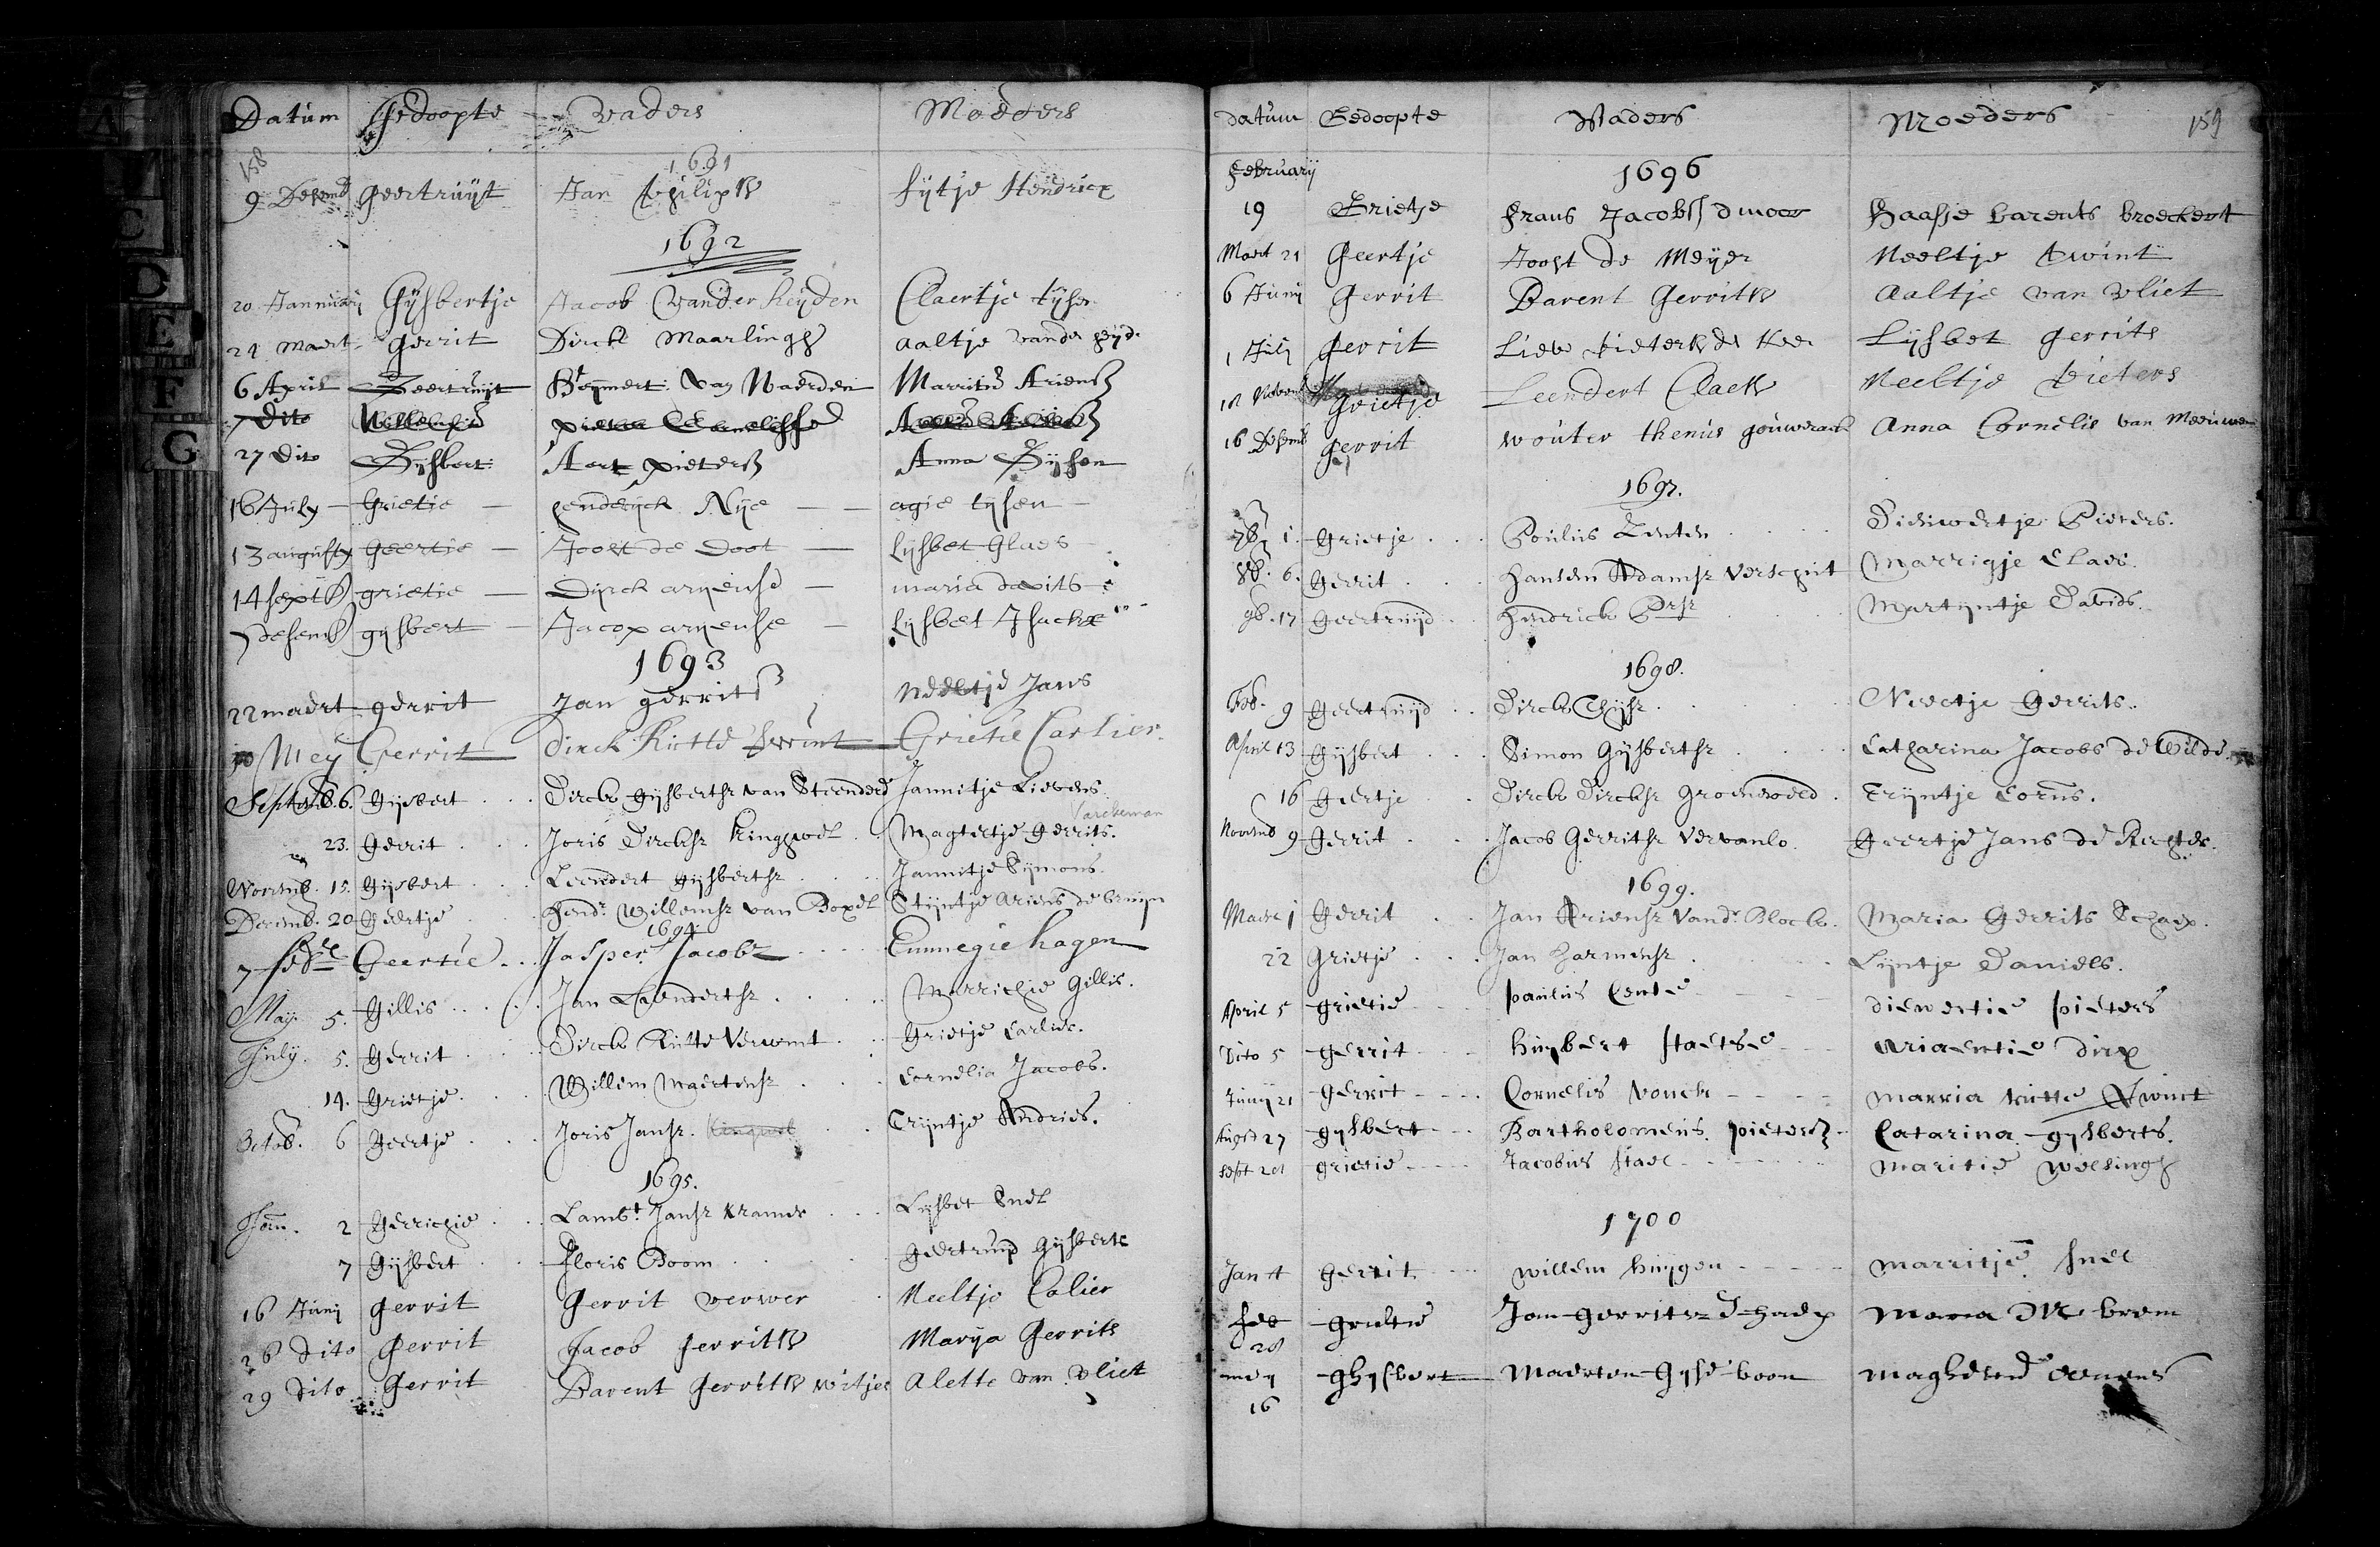 Datum Gedoopte vaders Moeders
158
1691
9 Desemb Geertruijt Jan philips Fijtje Hendricx
1692
20 Januarij Gijsbertje Jacob vander heijden Claertje tijsen
24 Maert Gerrit Dirck Maarlingh aaltje vander heijde
6 April Geertruijt Reijnert van Naerden Marritie Ariens
7 dito Willempie pieter Cornelisse
27 dito Gijsbert Aert pieters Anna Gijsen
16 July Grietie hendrijck Nije agie tijsen
13 augusty geertie Joost de Door lijsbet Glaes
14 septb grietie Dirck arijense maria davits
7 desemb gijsbert Jacop arijense lijsbet Isackx
1693
22 maert gerrit Jan gerrits neeltje Jans
30 Mey Gerrit dirck Kitte Grietie Carlier
Septemb. 6. Gijsbert Dirck Gijsbertsz van Steenderd Jannitje Lievens
Varckeman
23. Gerrit Joris Dircksz Magteltje Gerrits.
Novemb. 15. Gijsbert Leendert Gijsbertsz Jannitje Sijmons
Decemb. 20 Geertje Hendr. Willemsz van Boxel Stijntje Ariens de bruijn
1694
7 febr Geertie Jasper Jacobz Emmegie hagen
May 5. Gillis Jan Leendertsz Marrichie Gillis.
July 5. Gerrit Dirck Kitte Verwint Grietje Carlier.
14. Grietje Willem Maertensz Cornelia Jacobs.
Octob. 6 Geertje Joris Jansz. Trijntje Andries.
1695.
Jan. 2 Gerrichie Lambt Jansz Kramer Lijsbet Snel
7 Gijsbert Floris Boom Geertruijd Gijsberts
16 Junij Gerrit Gerrit verwer Neeltje Calier
26 dito Gerrit Jacob Gerrits Marya Gerrits
29 dito Gerrit Barent Gerrits witjes Alette van vliet
datum Gedoopte Vaders Moeders 159
February 1696
19 Grietje frans Jacobss dmoor Haasje barents broeckert
Maert 21 Geertje Joost de Meijer Neeltje twint
6 Junij Gerrit Barent Gerrits Aaltje van vliet
1 July Gerrit Lieve pieters de Kee Lijsbet Gerrits
18 Novemb Grietje Leendert Claes Neeltje Pieters
16 Desemb Gerrit Wouter thenis gouwerack Anna Cornelis van Meeuwen
1697.
7b. 1. Grietje Poulus Lenten Dieuwertje Pieters.
8b. 6. Gerrit Hansen Adamsz Marrigje Claes.
9b. 17 Geertruijd Hendrick Martijntje Davids.
1698.
Feb. 9 Geertruijd Dirck Thijsz Neeltje Gerrits.
April 13 Gijsbert Simon Gijsbertsz Catharina Jacobs de Wilde
16 Geertje Dirck Dircksz Groenewoed Trijntje Corns.
Novemb 9 Gerrit Jacob Gerritsz Vervanlo Geertje Jans de Rechter.
1699.
Maert 1 Gerrit Jan Ariensz vandr Block. Maria Gerrits Schaep.
22 Grietje Jan Harmensz Lijntje Daniels.
April 5 grietie paulus Cente diewertie pieters
Dito 5 gerrit huijbert staetse Ariaentie dirx
Junij 21 gerrit Cornelis vonck marria kitte Twint
August 27 gysbert Bartholomeus pieters Catarina gysberts.
sept 20 grietie Jacobus stael maritie wessingh
1700
Jan 4 Gerrit willem huijgen marritje snel
feb grietie Jan gerritsz Schaep maria brem
28
mey ghijsbert Maerten Gijse boon
16